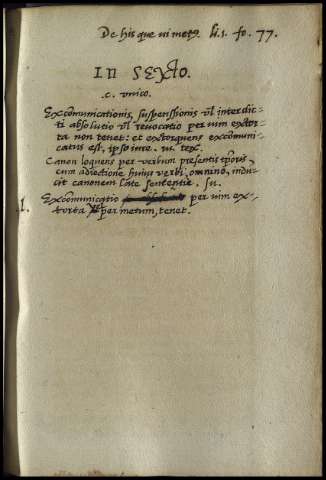 De his que vi metq3. li.1. fo. 77.
IN SEXTO.
.c. vnico.
Excõmunicationis, suspensionis vľ interdic-
ti absolutio vľ revocatio per uim extor-
ta non tenet: et extorquens excõmuni-
catus est, ipso iure. ut. tex.
Canon loquens per verbum presentis tp̃oris,
cum adiectione huius verbi, omnino, indu-
cit canonem late sententie. su.
.1. Excõmunicatio per uim ex-
torta per metum, tenet.